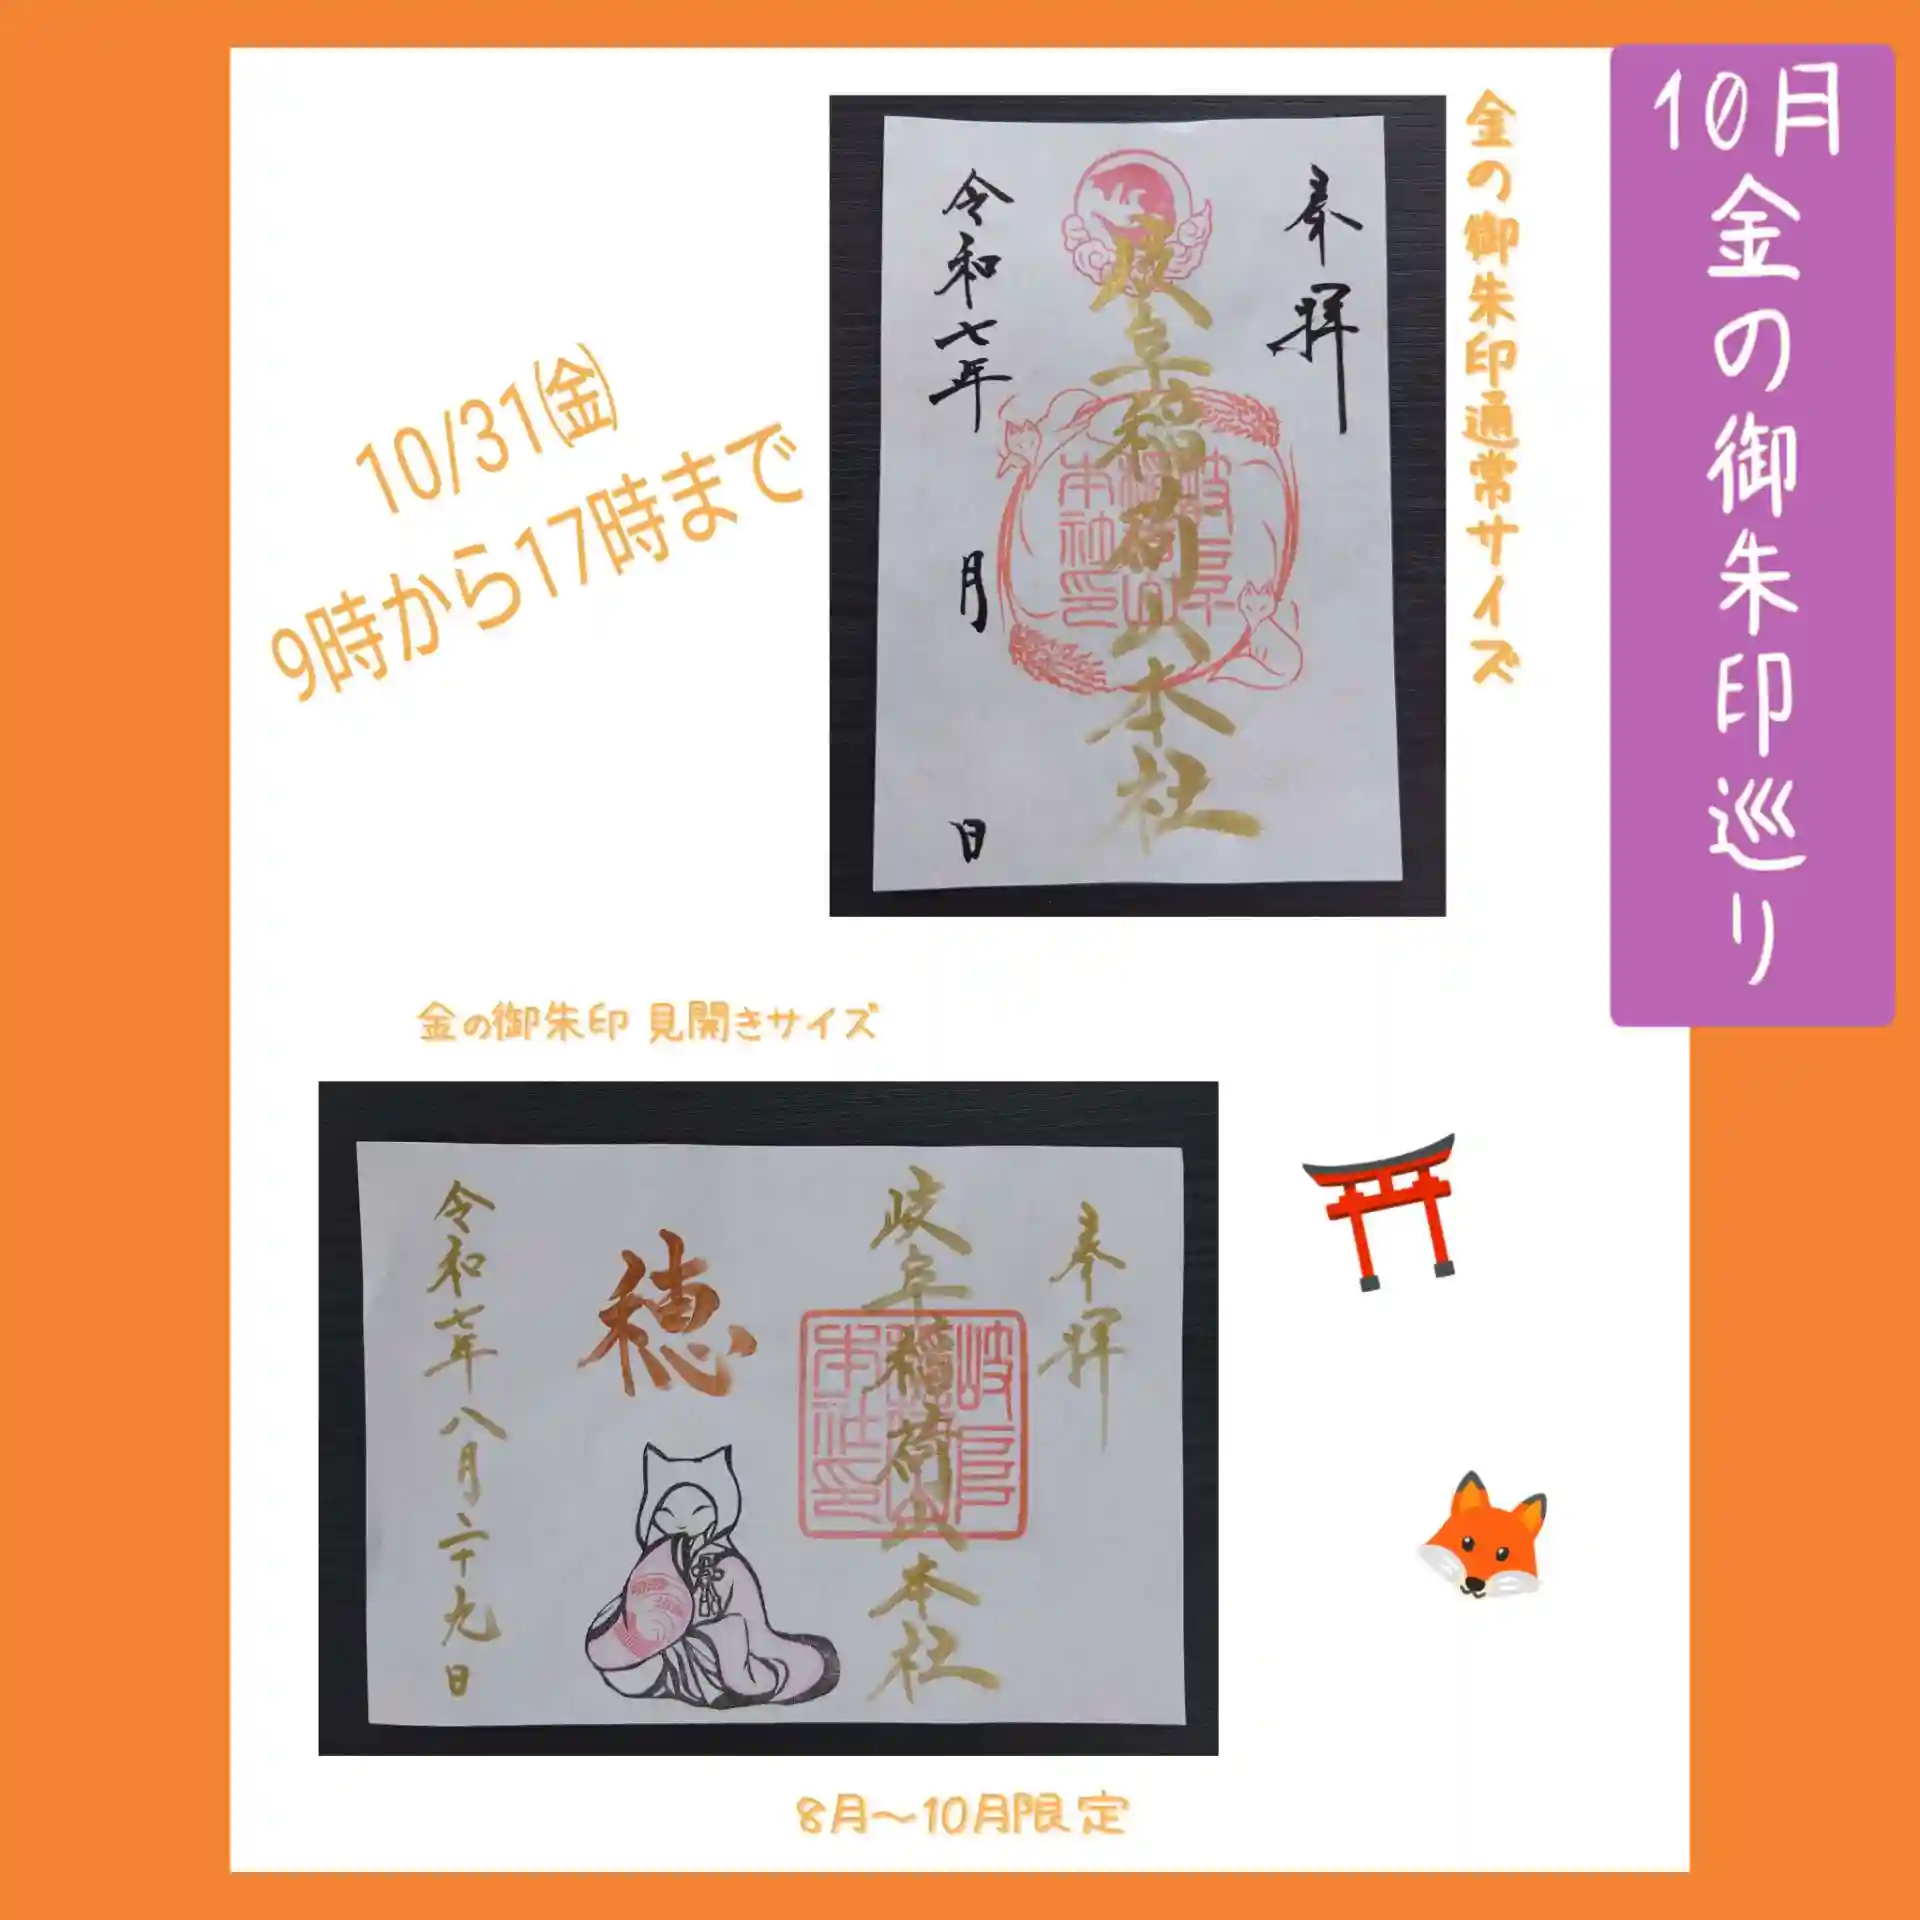 10月 金の御朱印巡り
金の御朱印通常サイズ
10/31㈮
9時から17時まで
奉拝
岐阜稲荷山本社
岐阜稲荷山本社印
令和七年 月 日
金の御朱印 見開きサイズ
奉拝
岐阜稲荷山本社
岐阜稲荷山本社印
穂
令和七年八月二十九日
8月～10月限定